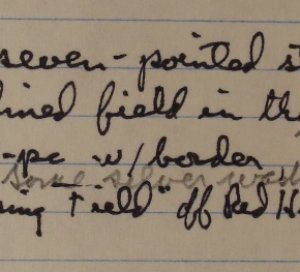 seven-pointed s
lined field in th
-pc w/border
some silver wash
ing Field" off Red H